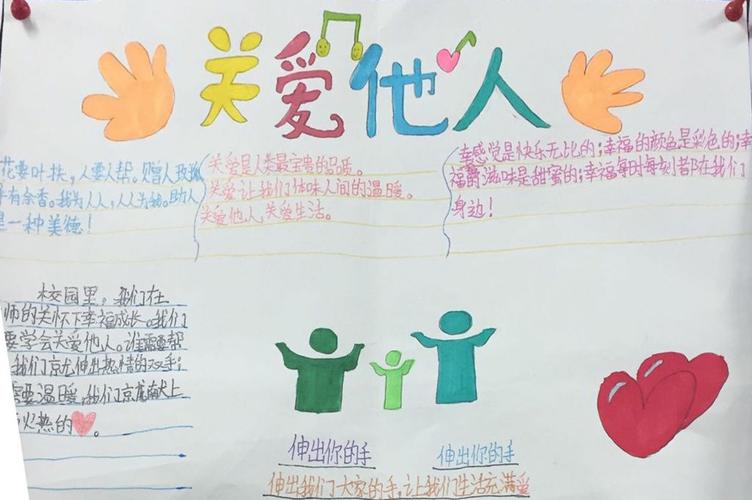 关爱他人
花要叶扶,人要人帮。赠人玫瑰
手有余香。我为人人,人人为我。助人
是一种美德!
关爱是人类最宝贵的品质。
关爱让我们体味人间的温暖。
关爱他人,关爱生活。
幸感觉是快乐无比的;幸福的颜色是彩色的;幸
福的滋味是甜蜜的;幸福每时每刻都在我们
身边!
校园里。我们在
师的关怀下幸福成长。我们
要学会关爱他人。谁需要帮
我们就伸出热情的双手;
需要温暖,我们就献上
火热的
伸出你的手
伸出你的手
伸出我们大家的手,让我们生活充满爱